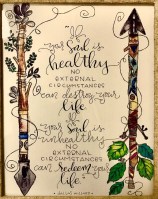 "If
your Soul is
healthy
NO
EXTERNAL
CIRCUMSTANCES
can destroy your
life.
If
your Soul is
unhealthy
NO
EXTERNAL
CIRCUMSTANCES
can redeem your
life."